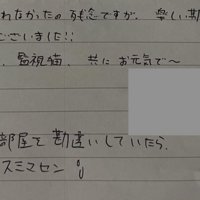 れなかったの 残念ですが、楽しい勤
ございました!!
、監視猫、共に お元気で〜
部屋を 勘違いしていたら、
スミマセン